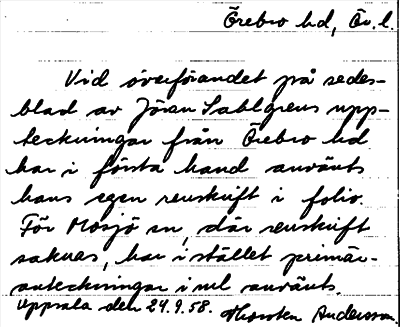 Örebro hd, Ör. l.
Vid överförandet på sedes-
blad av Jöran Sahlgrens upp-
teckningar från Örebro hd
har i första hand använts
hans egen renskrift i folio.
För Mosjö sn, där renskrift
saknas, har i stället primär-
anteckningar i ul använts.
Uppsala den 24.9.58. Thorsten Andersson.